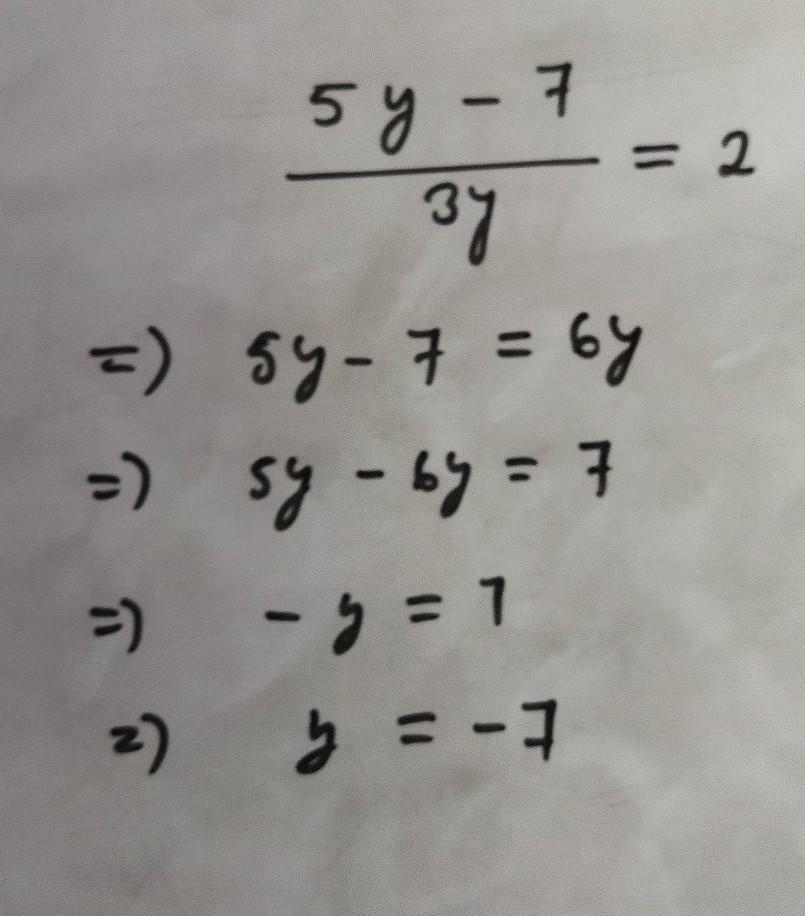 5y - 7
3y
= 2
=) 5y - 7 = 6y
=) 5y - 6y = 7
=) - y = 7
=) y = -7